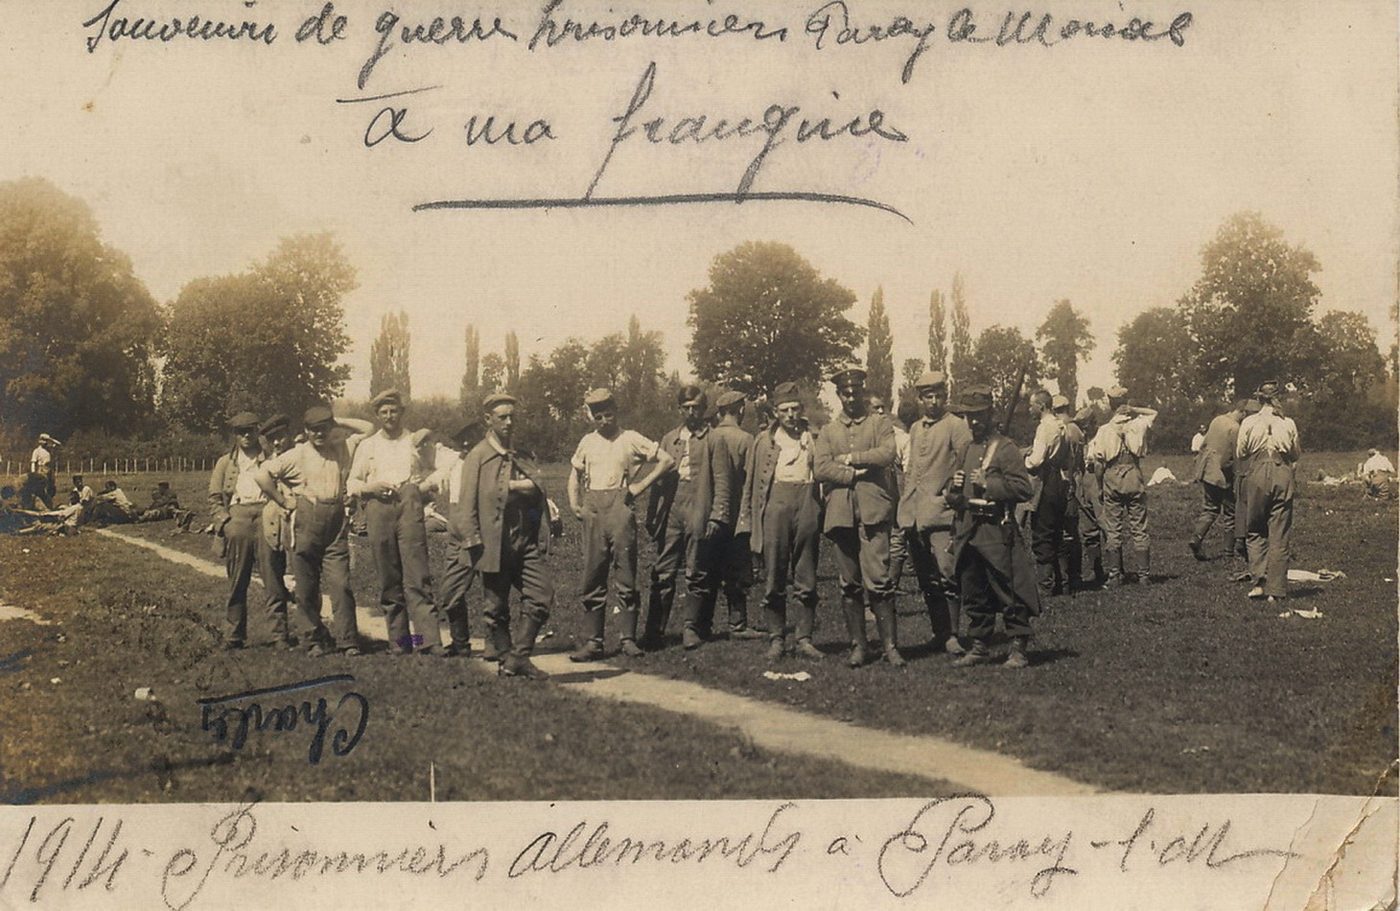 Souvenir de guerre prisonniers Paray le Monial
à ma frangine
Charles
1914 - Prisonniers allemands à Paray-l-M